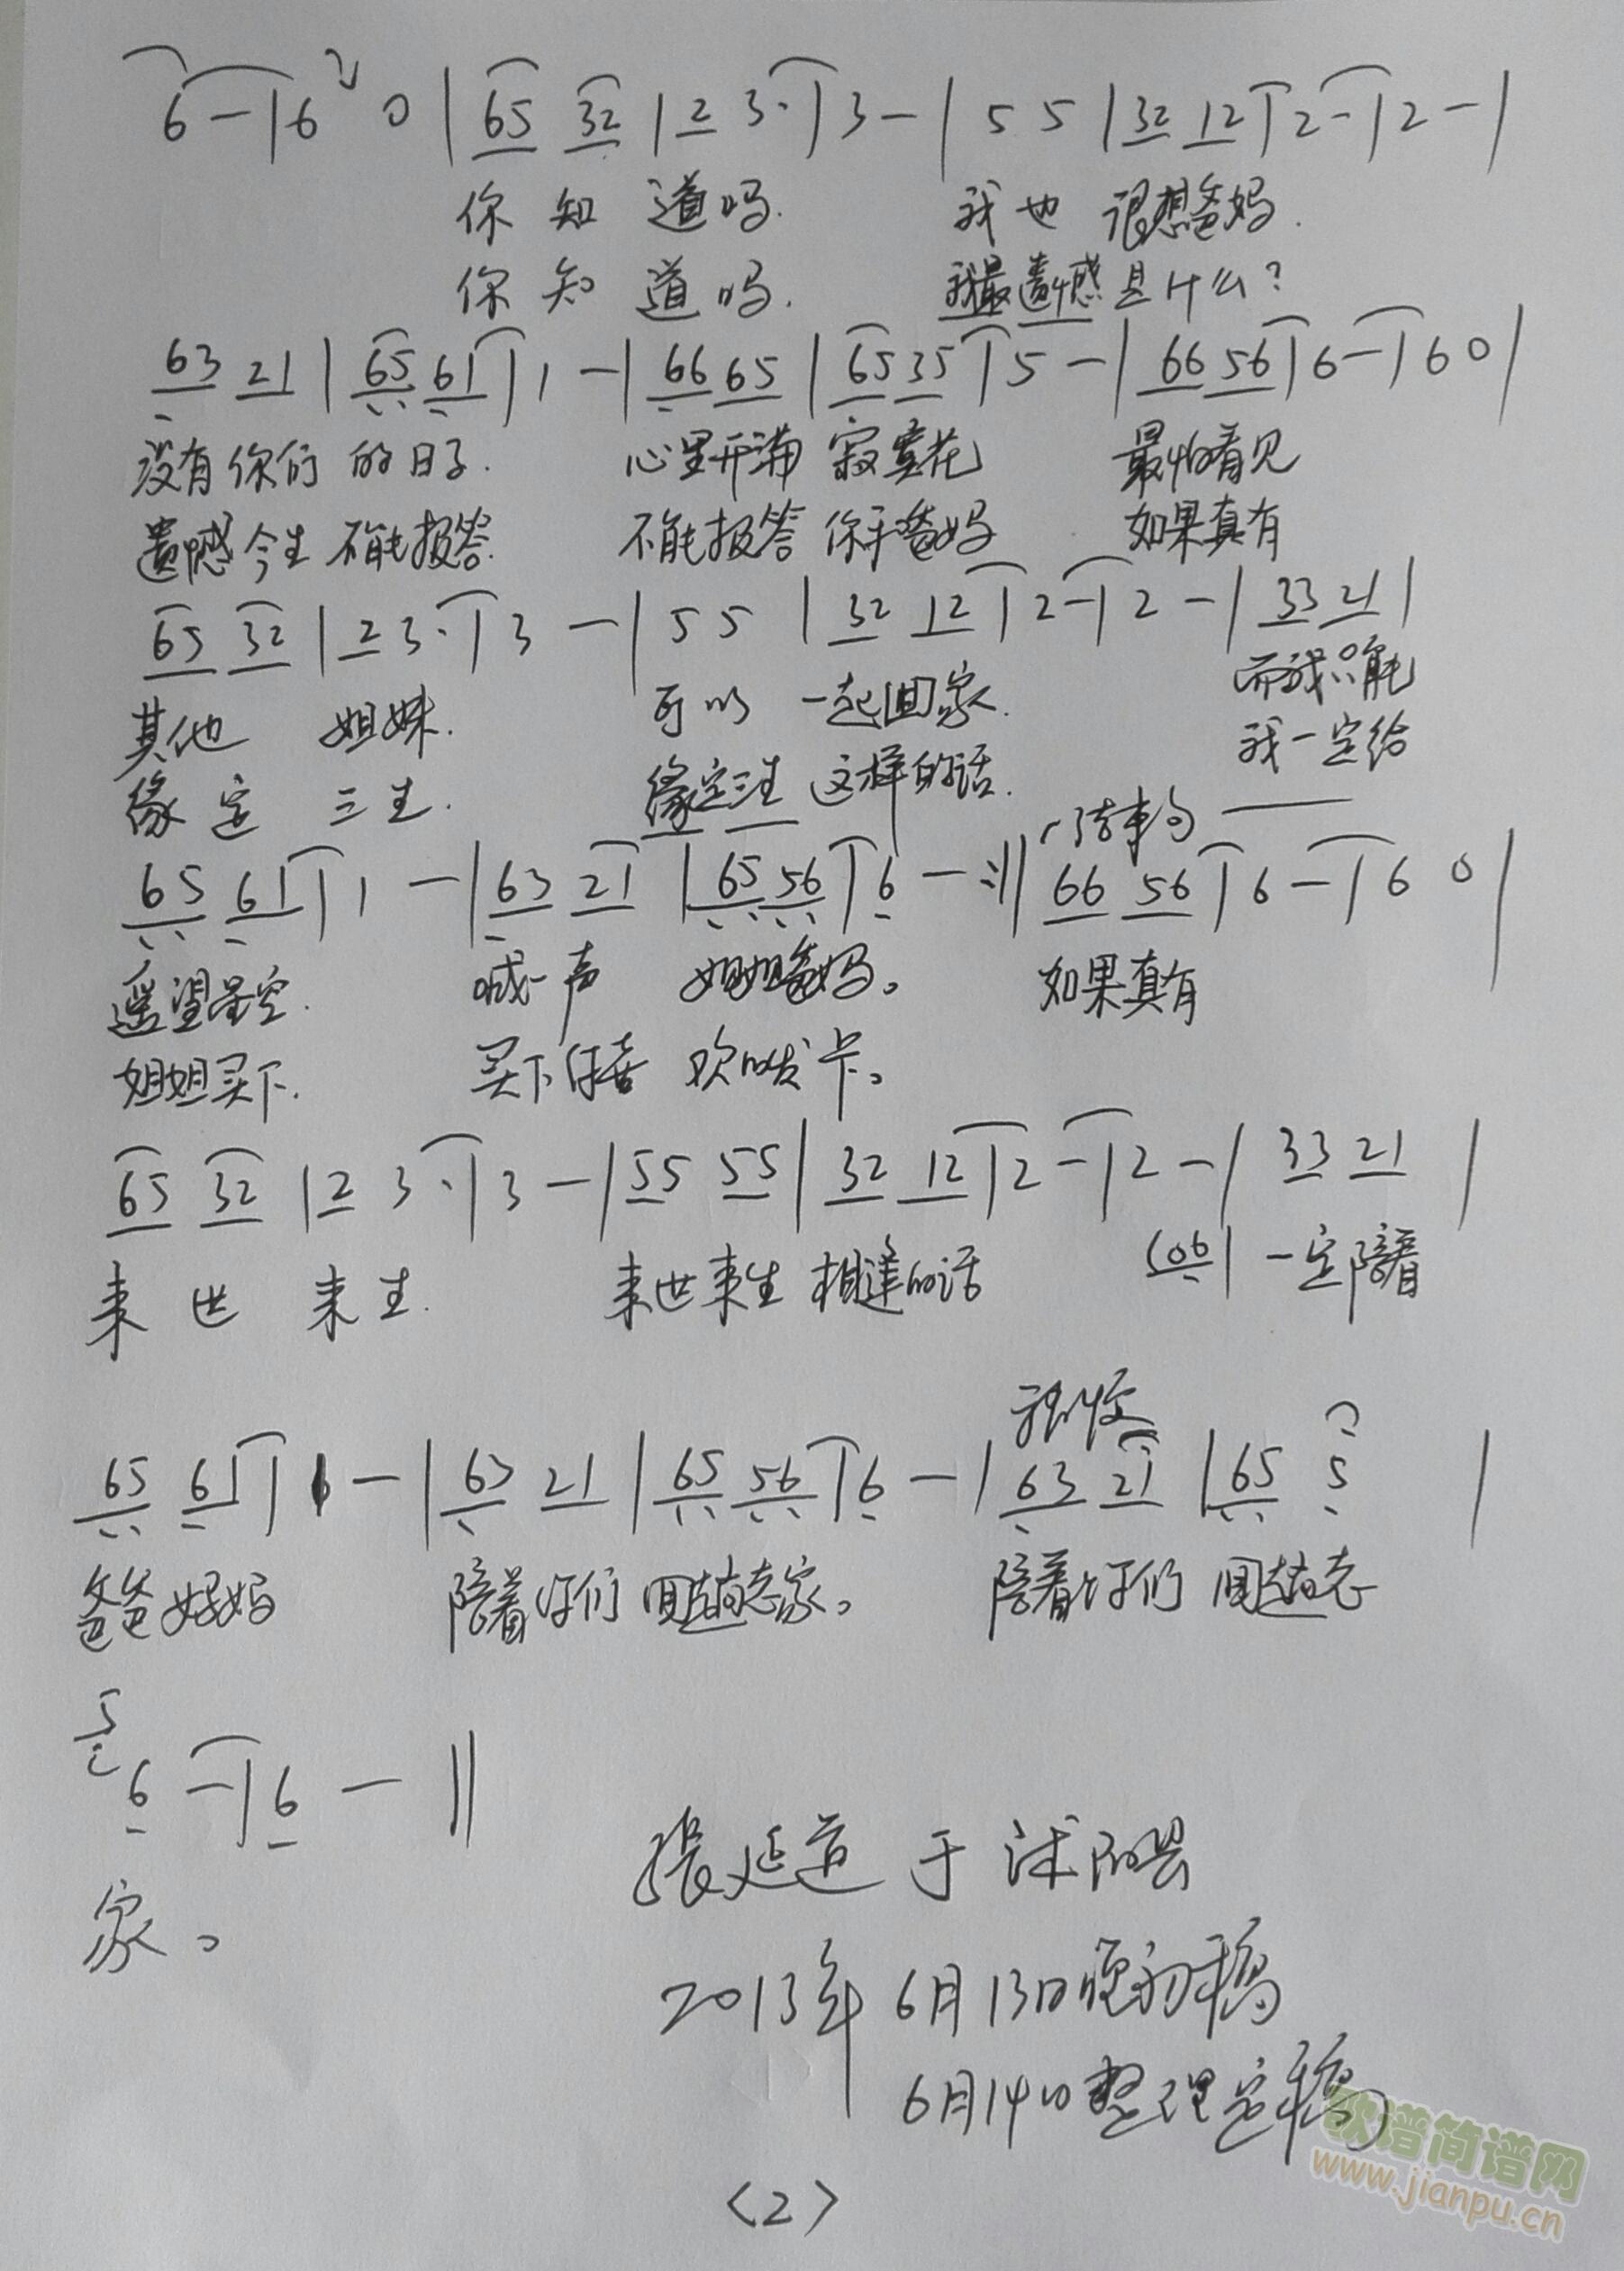 6 - | 6 0 | 65 32 | 2 3· | 3 - | 5 5 | 32 12 | 2 - | 2 - |
你 知 道吗. 我 也 很想爸妈.
你 知 道 吗. 我最遗憾 是什么?
63 21 | 65 61 | 1 - | 66 65 | 65 35 | 5 - | 66 56 | 6 - | 6 0 |
没有你们 的日子. 心里开满 寂寞花 最怕看见
遗憾今生 不能报答. 不能报答 你和爸妈 如果真有
65 32 | 2 3· | 3 - | 5 5 | 32 12 | 2 - | 2 - | 33 21 |
其他 姐妹. 可以 一起回家. 而我只能
缘定 三生. 缘定三生 这样的话. 我一定给
结束句
65 61 | 1 - | 63 21 | 65 56 | 6 - :|| 66 56 | 6 - | 6 0 |
遥望星空. 喊一声 姐姐爸妈。 如果真有
姐姐买下. 买下你喜 欢的发卡。
65 32 | 2 3· | 3 - | 55 55 | 32 12 | 2 - | 2 - | 33 21 |
来 世 来 生. 来世来生 相逢的话 (06) | 一定陪着
渐慢
65 61 | 1 - | 63 21 | 65 56 | 6 - | 63 21 | 65 5 |
爸爸妈妈 陪着你们 回趟老家。 陪着你们 回趟老
5 6 - | 6 - ||
家。
张延道 于 沭阳县
2013年 6月13日晚初稿
6月14日整理定稿
〈2〉
歌谱简谱网
www.jianpu.cn